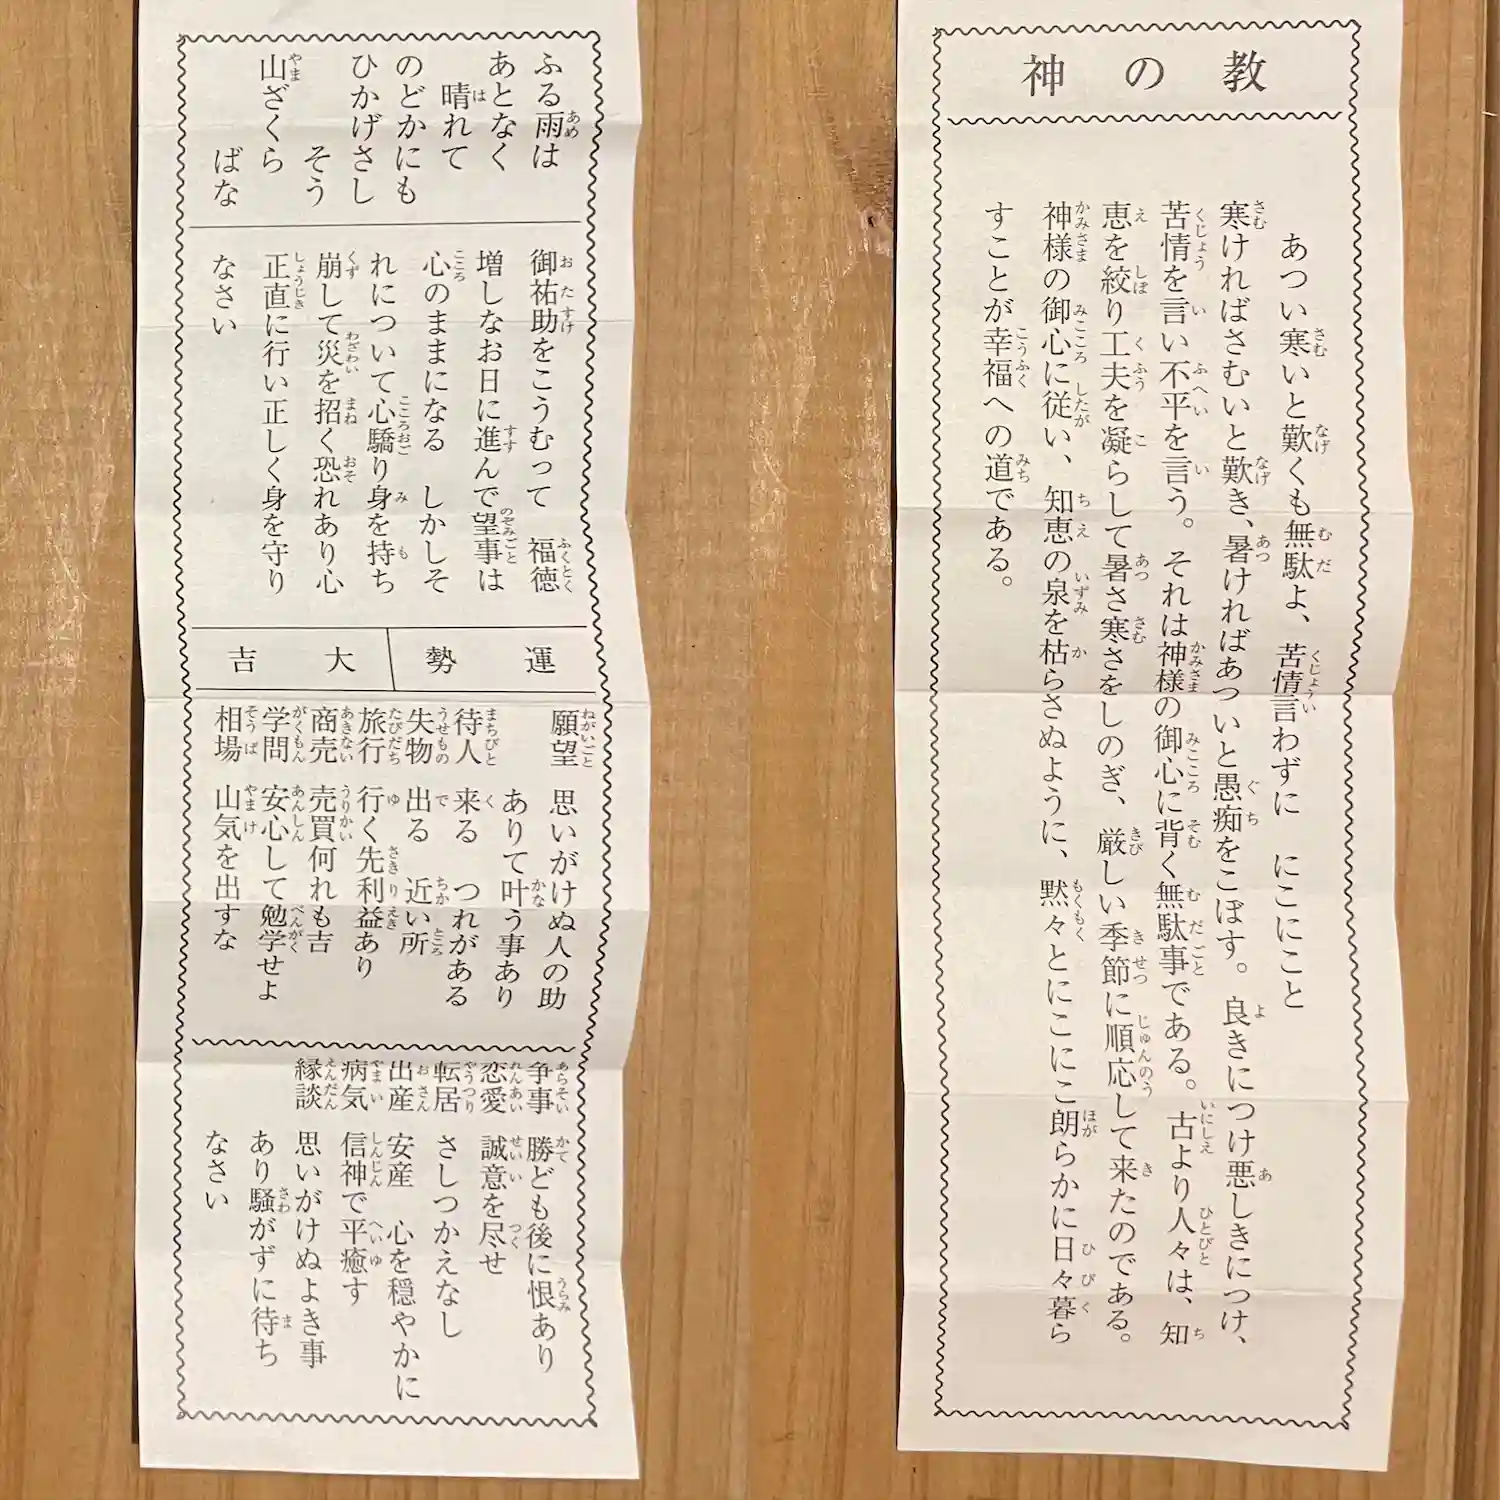 ふる雨は
あとなく
晴れて
のどかにも
ひかげさし
そう
山ざくら
ばな
御祐助をこうむって 福徳
増しなお日に進んで望事は
心のままになる しかしそ
れについて心驕り身を持ち
崩して災を招く恐れあり心
正直に行い正しく身を守り
なさい
運勢 大吉
願望 思いがけぬ人の助
ありて叶う事あり
待人 来る つれがある
失物 出る 近い所
旅行 行く先利益あり
商売 売買何れも吉
学問 安心して勉学せよ
相場 山気を出すな
争事 勝ども後に恨あり
恋愛 誠意を尽せ
転居 さしつかえなし
出産 安産 心を穏やかに
病気 信神で平癒す
縁談 思いがけぬよき事
あり騒がずに待ち
なさい
神の教
あつい寒いと歎くも無駄よ、苦情言わずに にこにこと
寒ければさむいと歎き、暑ければあついと愚痴をこぼす。良きにつけ悪しきにつけ、
苦情を言い不平を言う。それは神様の御心に背く無駄事である。古より人々は、知
恵を絞り工夫を凝らして暑さ寒さをしのぎ、厳しい季節に順応して来たのである。
神様の御心に従い、知恵の泉を枯らさぬように、黙々とにこにこ朗らかに日々暮ら
すことが幸福への道である。